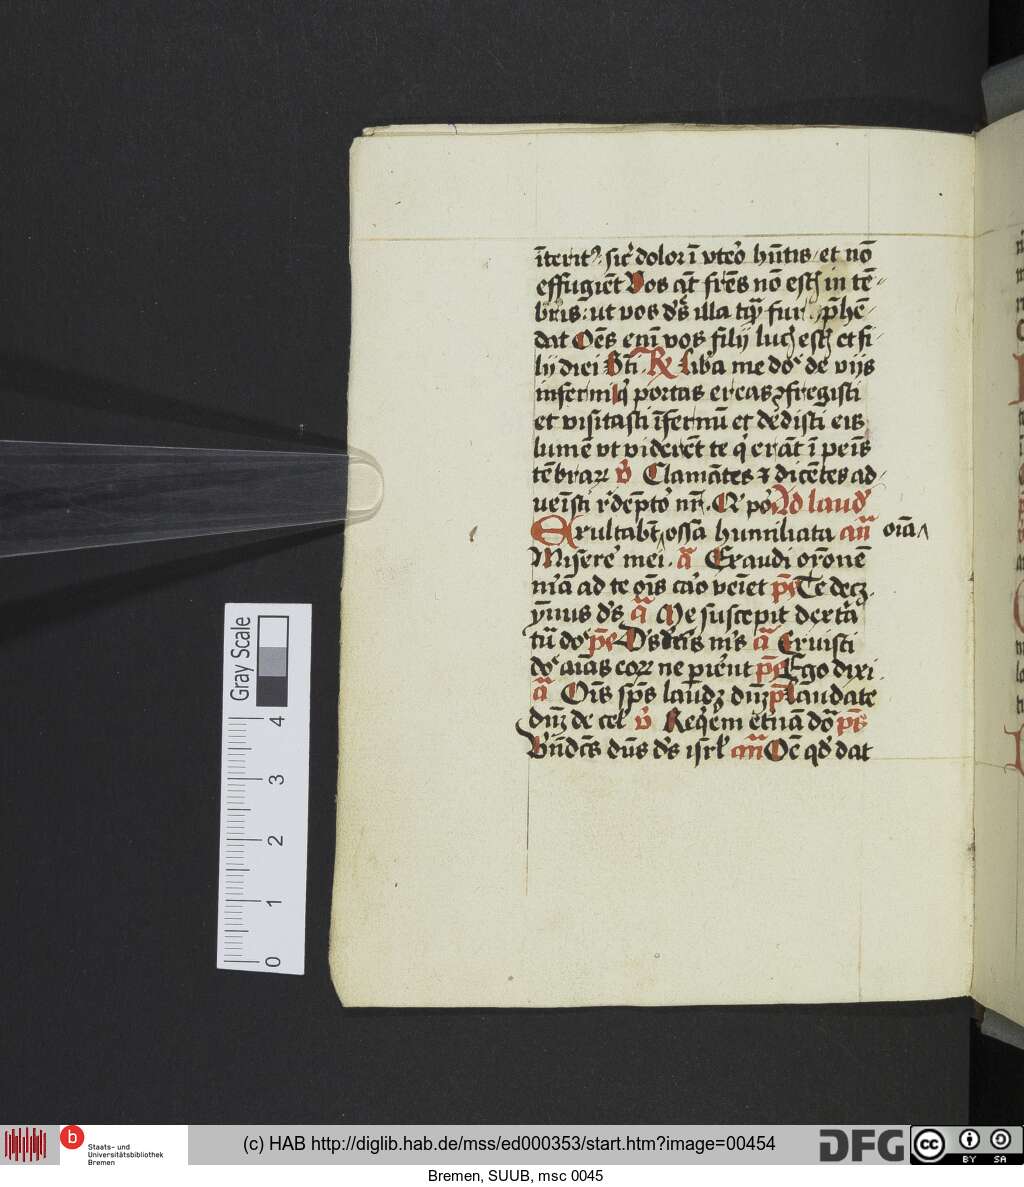 īterit⁹ sic̛ dolor ī vteᵒ hn̄tis et nō
effugiēt Vos aūt fr̄es nō estꝭ in tē
bris ut vos d̛s illa tq̄ fur p̄hē
dat Oēs em̄ vos filij lucꝭ estꝭ et fi
lij diei Bti ℟ Lib̛a me dō de vijs
inferni q̛ portas ereas ꝯfregisti
et visitasti īfernū et dedisti eis
lumē vt viderēt te q̛ erāt ī peīs
tēbraꝝ v̛ Clamātes ⁊ dicētes ad
ueīsti rͥdēptoͬ nr̄ Ad laud̛
Exultabt̄ ossa humiliata añ oīa
Misereͬ mei a̅ Exaudi oroēnē
mēā ad te oīs caͬo veīet ps̄ Te decꝫ
ymnus d̛s a̅ Me suscepit dextͣa
tūͣ doͤ ps̄ Ds d̛s m̛s a̅ Eruisti
dō aīas eoꝝ ne ꝑirēnt ps̄ Ego dixi
a̅ Oīs sp̄s laudꝫ dn̄ꝫ p̄ Laudate
dn̄ꝫ de cel̛ v̛ Req̛em et̛nā dō ps̄
Bn̄dcs̄ dn̄s d̛s isrl̛ añ Oē qd̛ dat
Gray Scale
4
3
2
1
0
b
Staats- und
Universitätsbibliothek
Bremen
(c) HAB http://diglib.hab.de/mss/ed000353/start.htm?image=00454
DFG
cc
BY SA
Bremen, SUUB, msc 0045